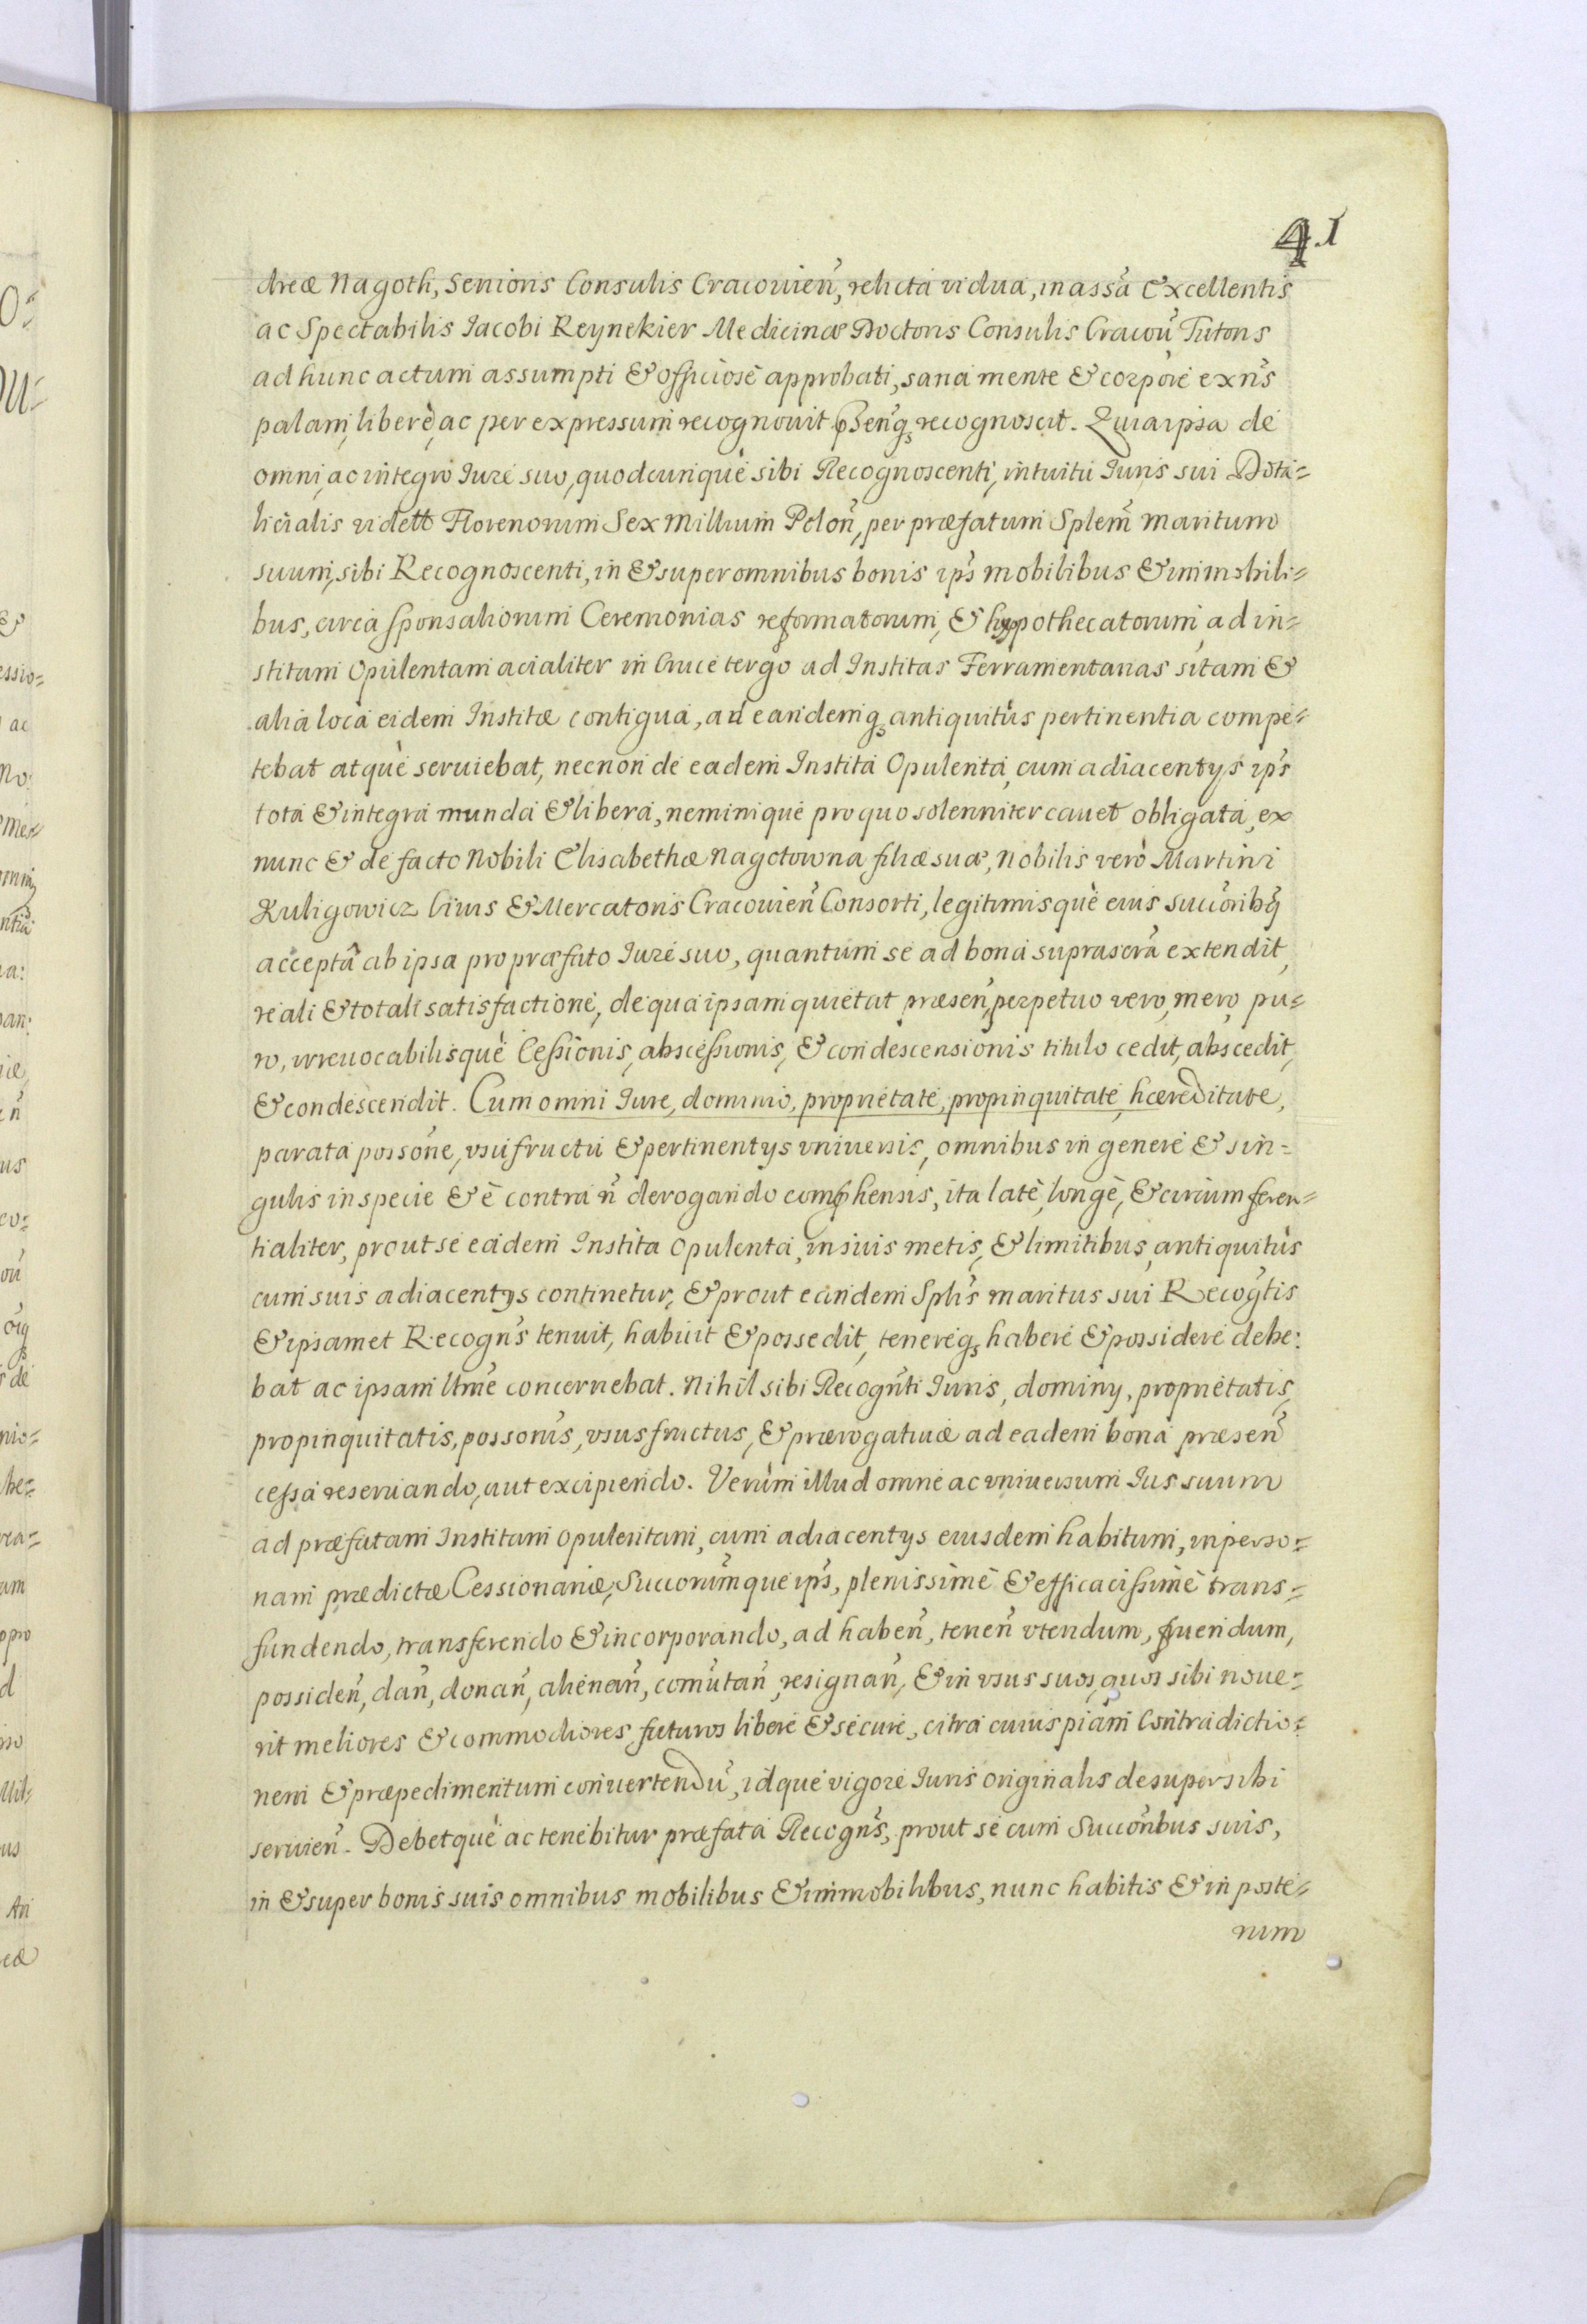 41
dreæ Nagoth, Senioris Consulis Cracouien̄, relicta vidua, in assn̄a Excellentis
ac Spectabilis Iacobi Reynekier Medicinæ Doctoris Consulis Cracou̅ Tutoris
ad hunc actum assumpti & officiosè approbati, sana mente & corpore exn̄s
palam, liberè, ac per expressum recognouit p̄senq̃ recognoscit. Quia ipsa de
omni, ac integro Iure suo, quodcunque sibi Recognoscenti, intuitu Iuris sui Dota=
licialis vidett Florenorum Sex Millium Polon̄, per præfatum Splem̄ maritum
suum, sibi Recognoscenti, in & super omnibus bonis ip̄s mobilibus & immobili=
bus, circa sponsaliorum Ceremonias reformatorum, & hypothecatorum, ad in=
stitam Opulentam acialiter in Cruce tergo ad Institas Ferramentarias sitam &
alia loca eidem Institæ contigua, ad eandemq̃ antiquitùs pertinentia compe=
tebat atque seruiebat, necnon de eadem Instita Opulenta, cum adiacentijs ip̄s
tota & integra munda & libera, neminique pro quo solenniter cauet obligata, ex
nunc & de facto Nobili Elisabethæ Nagotowna filiæ suæ, Nobilis verò Martini
Kuligowicz Ciuis & Mercatoris Cracouien̄ Consorti, legitimisquè eius succōribq̃
acceptâ ab ipsa pro præfato Iure suo, quantum se ad bona suprascr̄a extendit,
reali & totali satisfactione, de qua ipsam quietat præsen̄, perpetuo vero, mero, pu=
ro, irreuocabilisquè Cessionis, abscessionis, & condescensionis titulo cedit, abscedit,
& condescendit. Cum omni Iure, dominio, proprietate, propinquitate, hæreditate,
parata possōne, vsufructu & pertinentijs vniuersis, omnibus in genere & sin=
gulis in specie & è contra n̄ derogando comp̄hensis, ita latè, longè, & circumferen=
tialiter, prout se eadem Instita Opulenta, in suis metis, & limitibus, antiquitùs
cum suis adiacentijs continetur, & prout eandem Splis̄ maritus sui Recogt̄is
& ipsamet Recogn̄s tenuit, habuit & possedit, tenereq̃ habere & possidere debe:
bat ac ipsam ltm̄e concernebat. Nihil sibi Recogn̄ti Iuris, dominij, proprietatis,
propinquitatis, possonis̄, vsusfructus, & prærogatiuæ ad eadem bona præsen̄
cessa reseruando, aut excipiendo. Verùm illud omne ac vniuersum Ius suum
ad præfatam Institam opulentam, cum adiacentijs eiusdem habitum, in perso=
nam prædictæ Cessionariæ, Succorum̄que ip̄s, plenissimè & efficacissimè trans=
fundendo, transferendo & incorporando, ad haben̄, tenen̄ vtendum, fruendum,
possiden̄, dan̄, donan̄, alienan̄, com̄utan̄, resignan̄, & in vsus suos, quos sibi noue=
rit meliores & commodiores futuros liberè & securè, citra cuiuspiam Contradictio=
nem & præpedimentum conuertendū, idque vigore Iuris originalis desuper sibi
seruien̄. Debetquè ac tenebitur præfata Recogn̄s, prout se cum Succorībus suis,
in & super bonis suis omnibus mobilibus & immobilibus, nunc habitis & in poste=
rum